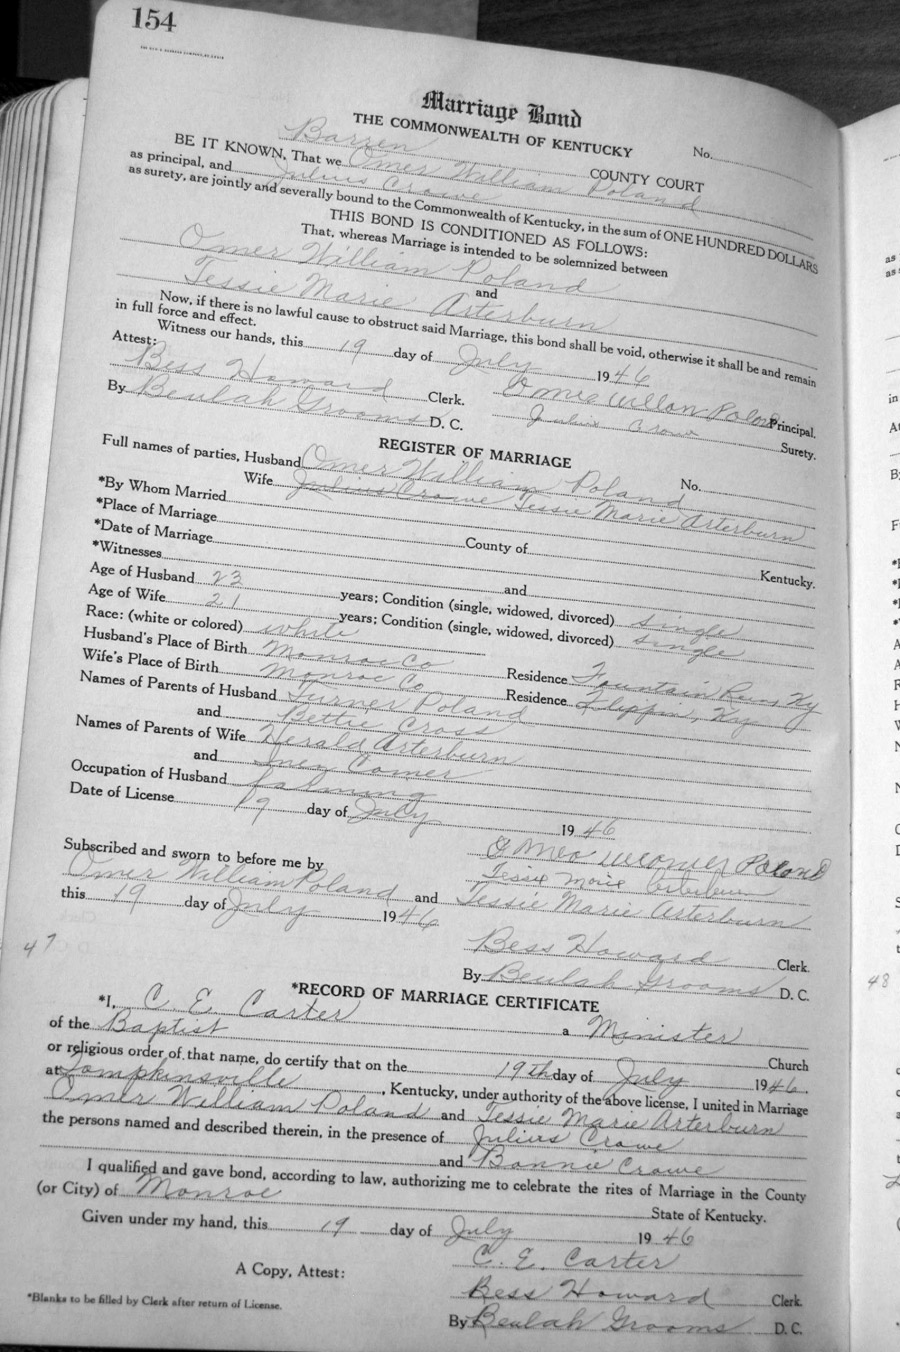 154
Marriage Bond
THE COMMONWEALTH OF KENTUCKY
No.
Barren COUNTY COURT
BE IT KNOWN, That we Omer William Poland
as principal, and Julius Crowe
as surety, are jointly and severally bound to the Commonwealth of Kentucky, in the sum of ONE HUNDRED DOLLARS
THIS BOND IS CONDITIONED AS FOLLOWS:
That, whereas Marriage is intended to be solemnized between
Omer William Poland
and
Tessie Marie Arterburn
Now, if there is no lawful cause to obstruct said Marriage, this bond shall be void, otherwise it shall be and remain
in full force and effect.
Witness our hands, this 19 day of July 1946
Attest:
Bess Howard Clerk. Omer Poland Principal.
By Beulah Grooms D. C. Julius Crow Surety.
REGISTER OF MARRIAGE
No.
Full names of parties, Husband Omer William Poland
Wife Julius Crowe Tessie Marie Arterburn
*By Whom Married
*Place of Marriage County of Kentucky.
*Date of Marriage
*Witnesses and
Age of Husband 23 years; Condition (single, widowed, divorced) single
Age of Wife 21 years; Condition (single, widowed, divorced) single
Race: (white or colored) white
Husband's Place of Birth Monroe Co Residence Fountain Run, Ky
Wife's Place of Birth Monroe Co Residence Flippin, Ky
Names of Parents of Husband Turner Poland
and Bettie Cross
Names of Parents of Wife Herald Arterburn
and Inez Comer
Occupation of Husband farming
Date of License 19 day of July 1946
Subscribed and sworn to before me by Omer Poland
Tessie Marie Arterburn
Omer William Poland and Tessie Marie Arterburn
this 19 day of July 1946
47
Bess Howard Clerk.
By Beulah Grooms D. C.
48
*RECORD OF MARRIAGE CERTIFICATE
*I, C. E. Carter a Minister
of the Baptist Church
or religious order of that name, do certify that on the 19th day of July 1946.
at Tompkinsville, Kentucky, under authority of the above license, I united in Marriage
Omer William Poland and Tessie Marie Arterburn
the persons named and described therein, in the presence of Julius Crowe
and Bonnie Crowe
I qualified and gave bond, according to law, authorizing me to celebrate the rites of Marriage in the County
(or City) of Monroe State of Kentucky.
Given under my hand, this 19 day of July 1946
C. E. Carter
A Copy, Attest:
Bess Howard Clerk.
*Blanks to be filled by Clerk after return of License.
By Beulah Grooms D. C.